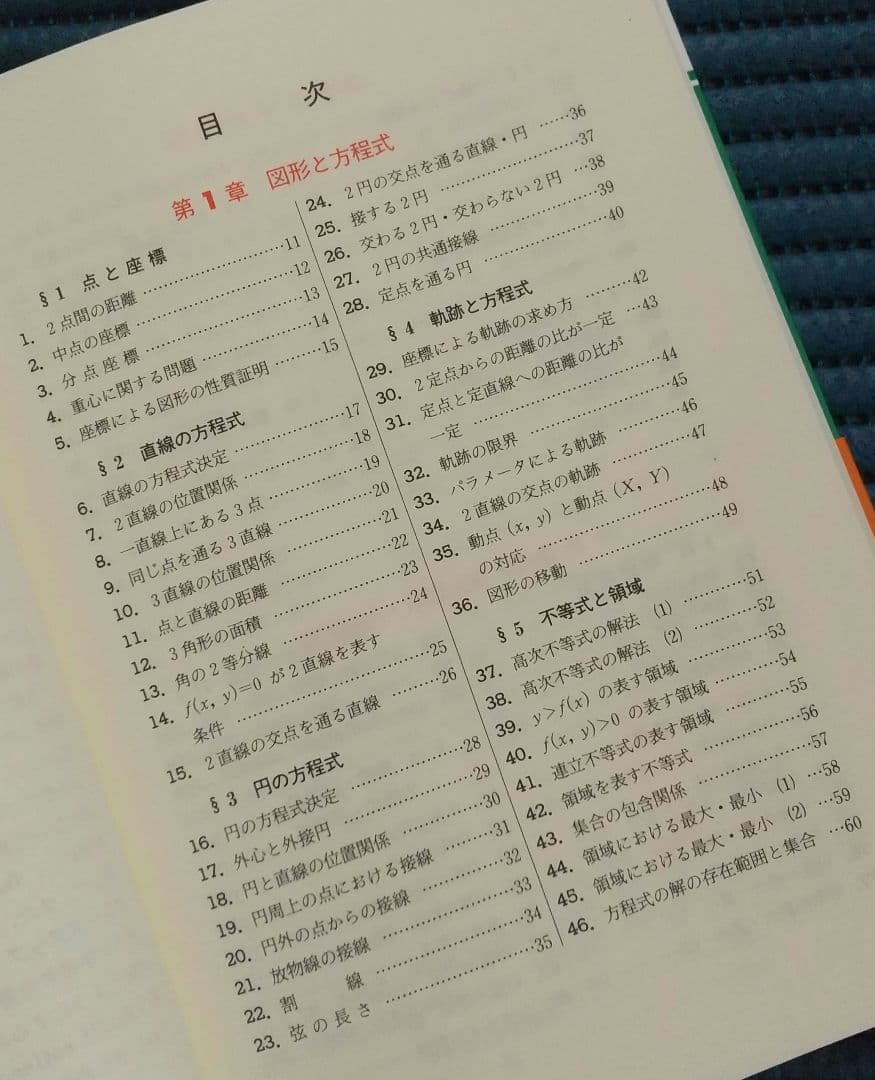 目次
第1章 図形と方程式
§1 点と座標
1. 2点間の距離 ……………………11
2. 中点の座標 ……………………12
3. 分点座標 ……………………13
4. 重心に関する問題 ……………14
5. 座標による図形の性質証明 ………15
§2 直線の方程式
6. 直線の方程式決定 ……………17
7. 2直線の位置関係 ……………18
8. 一直線上にある3点 ……………19
9. 同じ点を通る3直線 ……………20
10. 3直線の位置関係 ……………21
11. 点と直線の距離 ……………22
12. 3角形の面積 ……………………23
13. 角の2等分線 ……………………24
14. f(x, y)=0 が2直線を表す
条件 ……………………………25
15. 2直線の交点を通る直線 ………26
§3 円の方程式
16. 円の方程式決定 ……………28
17. 外心と外接円 ……………………29
18. 円と直線の位置関係 ……………30
19. 円周上の点における接線 ………31
20. 円外の点からの接線 ……………32
21. 放物線の接線 ……………………33
22. 割線 ……………………………34
23. 弦の長さ ……………………………35
24. 2円の交点を通る直線・円 ……36
25. 接する2円 ……………………37
26. 交わる2円・交わらない2円 …38
27. 2円の共通接線 ……………39
28. 定点を通る円 ……………………40
§4 軌跡と方程式
29. 座標による軌跡の求め方 ………42
30. 2定点からの距離の比が一定 …43
31. 定点と定直線への距離の比が
一定 ……………………………44
32. 軌跡の限界 ……………………45
33. パラメータによる軌跡 ……………46
34. 2直線の交点の軌跡 ……………47
35. 動点 (x, y) と動点 (X, Y)
の対応 ……………………………48
36. 図形の移動 ……………………49
§5 不等式と領域
37. 高次不等式の解法 (1) …………51
38. 高次不等式の解法 (2) …………52
39. y>f(x) の表す領域 ……………53
40. f(x, y)>0 の表す領域 …………54
41. 連立不等式の表す領域 …………55
42. 領域を表す不等式 ……………56
43. 集合の包含関係 ……………57
44. 領域における最大・最小 (1) …58
45. 領域における最大・最小 (2) …59
46. 方程式の解の存在範囲と集合 …60